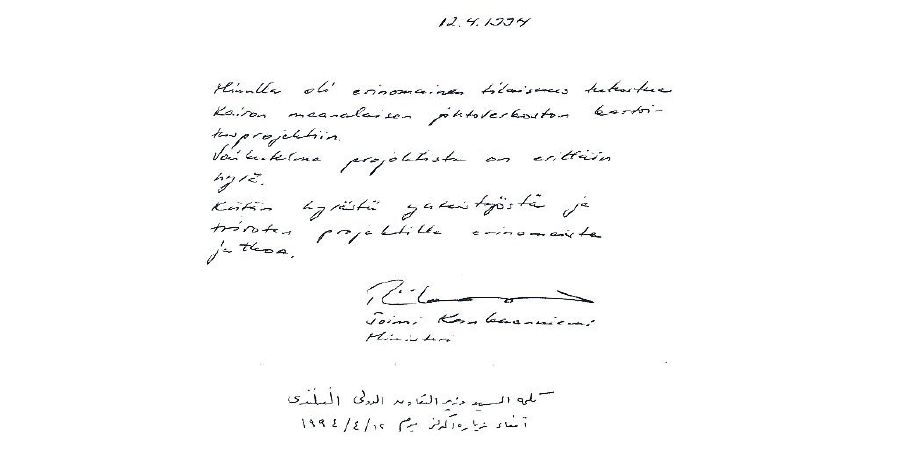 12.4.1994
Minulla oli erinomainen tilaisuus tutustua
Kairon maanalaisen johtoverkoston kartoi-
tusprojektiin.
Vaikutelma projektista on erittäin
hyvä.
Kiitän hyvästä yhteistyöstä ja
toivotan projektille erinomaista
jatkoa.
Toimi Kankaanniemi
Ministeri
كلمة السيد وزير التعاون الدولى الفنلندى
أثناء زيارة المركز يوم ١٩٩٤/٤/١٢